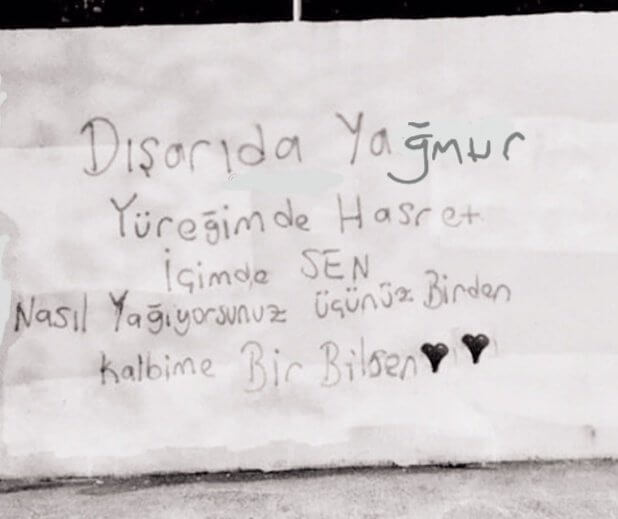 Dışarıda Yağmur
Yüreğimde Hasret
İçimde SEN
Nasıl Yağıyorsunuz üçünüz Birden
Kalbime Bir Bilsen♥ ♥